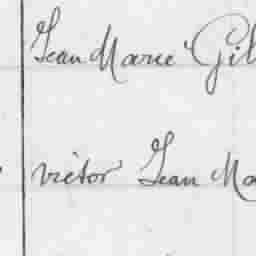 Jean Marie Gil
victor Jean Ma